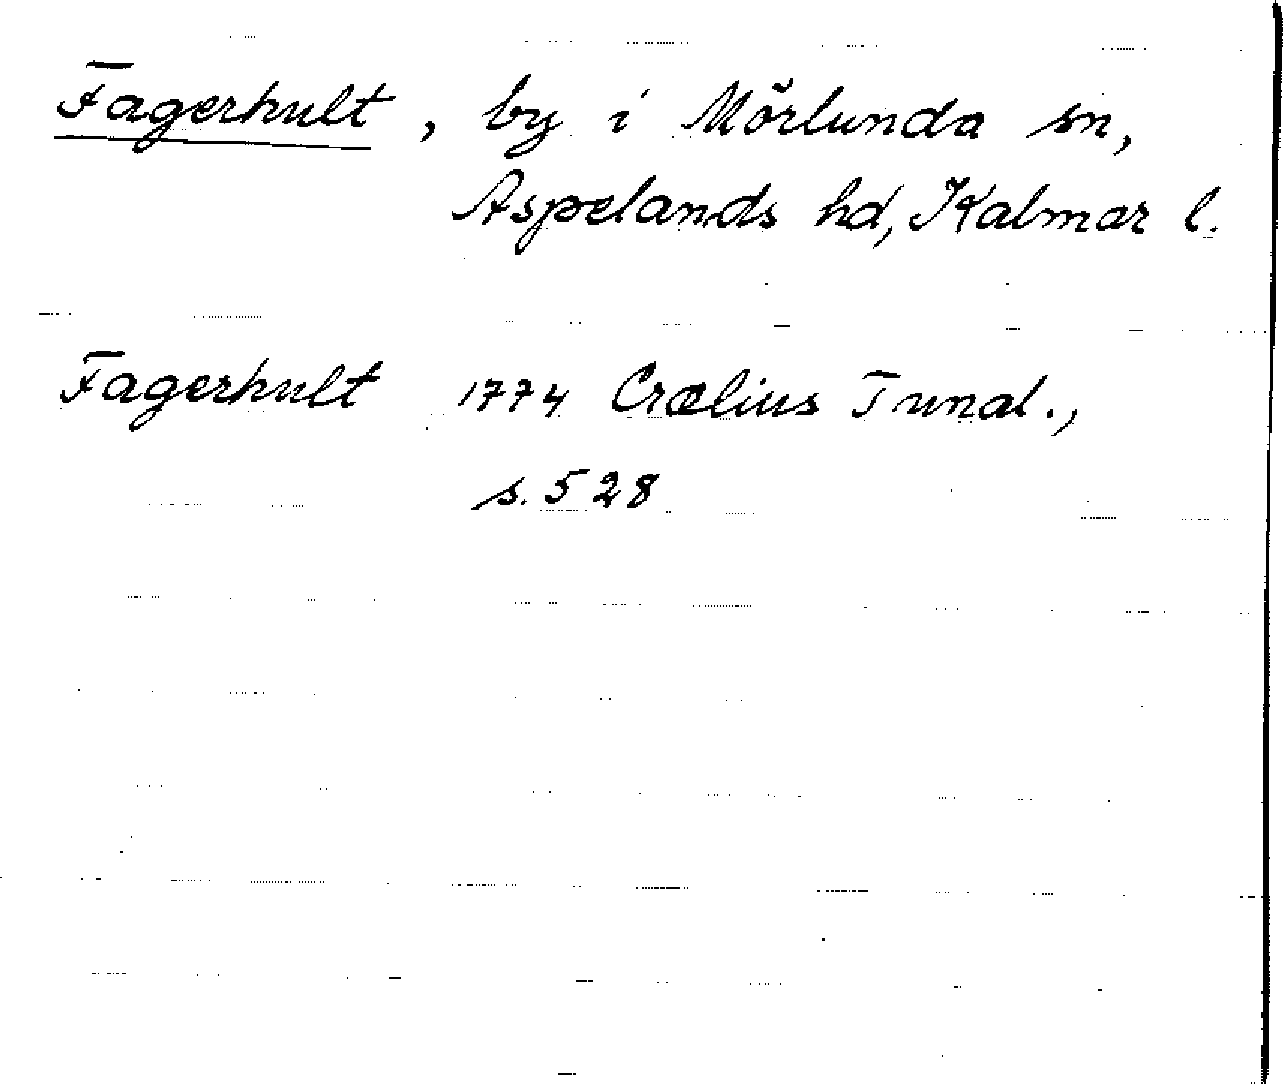 Fagerhult, by i Mörlunda sn,
Aspelands hd, Kalmar l.
Fagerhult 1774 Crælius Tunal.,
s. 528